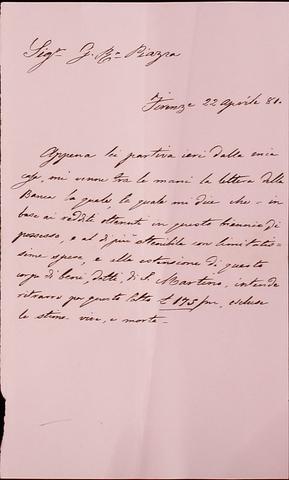 Sigr. G. Bta. Piazza
Firenze 22 aprile 81.
Appena lei partiva ieri dalla mia
casa, mi venne tra le mani la lettera della
Banca la quale la quale mi dice che - in
base ai redditi ottenuti in questo triennio di
possesso, e al di più ottenibile con limitatis-
sime spese, e alla estensione di questo
corpo di beni, detti, di S. Martino, intende
ritrarre per questo lotto £ 175 m, escluse
le stime vive, e morte -